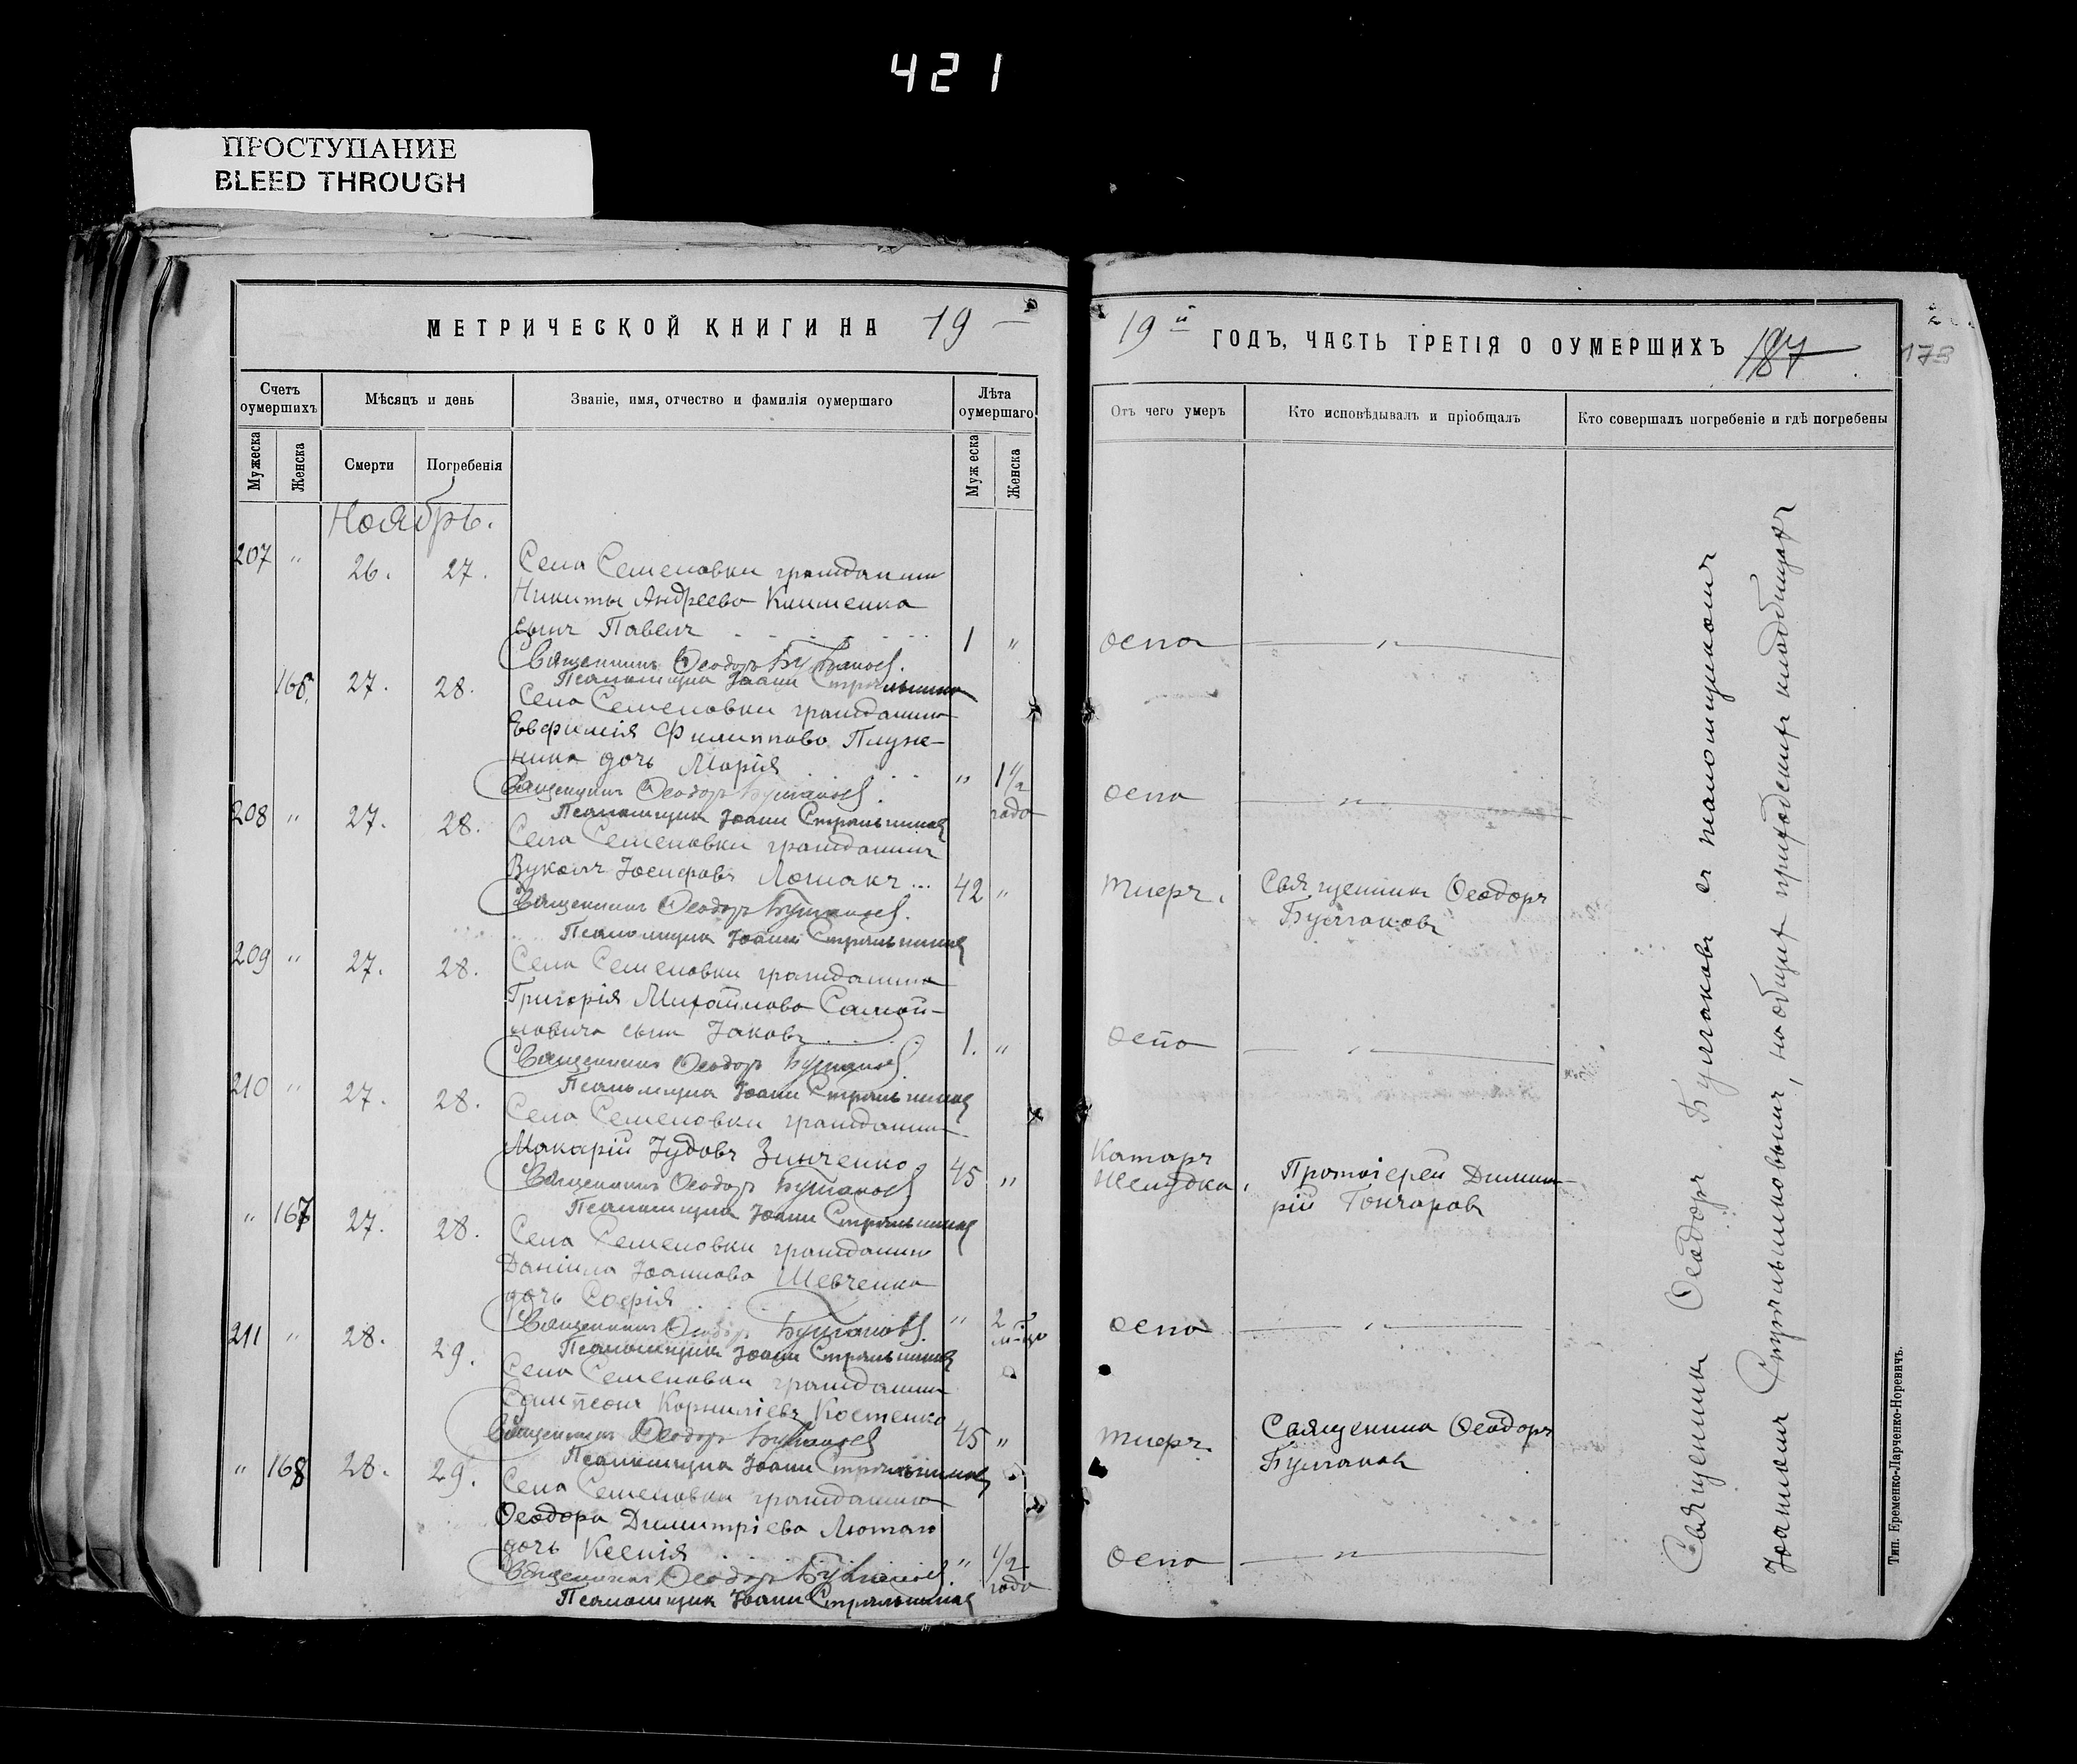 421
ПРОСТУПАНИЕ
BLEED THROUGH
МЕТРИЧЕСКОЙ КНИГИ НА 19
Счетъ оумершихъ
Мѣсяцъ и день
Званіе, имя, отчество и фамилія оумершаго
Лѣта оумершаго
Мужеска
Женска
Смерти
Погребенія
Мужеска
Женска
Ноябрь.
207 " 26. 27. Села Семеновки гражданина
Никиты Андреева Клименка
сынъ Павелъ 1 "
Священникъ Ѳеодоръ Булгаковъ.
Псаломщикъ Іоаннъ Стрѣльников
166. 27. 28. Села Семеновки гражданина
Евфимія Филиппова Плуж-
ника дочь Марія " 1 1/2 года
Священникъ Ѳеодоръ Булгаковъ.
Псаломщикъ Іоаннъ Стрѣльников
208 " 27. 28. Села Семеновки гражданинъ
Вуколъ Іосифовъ Лошакъ... 42 "
Священникъ Ѳеодоръ Булгаковъ.
Псаломщикъ Іоаннъ Стрѣльников
209 " 27. 28. Села Семеновки гражданина
Григорія Михайлова Самой-
ловича сынъ Іаковъ 1. "
Священникъ Ѳеодоръ Булгаковъ
Псаломщикъ Іоаннъ Стрѣльников
210 " 27. 28. Села Семеновки гражданинъ
Макарій Іудовъ Зинченко 45 "
Священникъ Ѳеодоръ Булгаковъ
Псаломщикъ Іоаннъ Стрѣльников
" 167 27. 28. Села Семеновки гражданина
Даніила Іоаннова Шевченка
дочь Софія " 2
Священникъ Ѳеодоръ Булгаковъ.
Псаломщикъ Іоаннъ Стрѣльников
211 " 28. 29. Села Семеновки гражданинъ
Сампсонъ Корниліевъ Костенко 45 "
Священникъ Ѳеодоръ Булгаковъ
Псаломщикъ Іоаннъ Стрѣльников
" 168 28. 29. Села Семеновки гражданина
Ѳеодора Димитріева Лютаго
дочь Ксенія " 1/2 года
Священникъ Ѳеодоръ Булгаковъ.
Псаломщикъ Іоаннъ Стрѣльников
19й ГОДЪ, ЧАСТЬ ТРЕТІЯ О ОУМЕРШИХЪ 187
173
Отъ чего умеръ
Кто исповѣдывалъ и пріобщалъ
Кто совершалъ погребеніе и гдѣ погребены
оспа "
оспа "
тифъ. Священникъ Ѳеодоръ
Булгаковъ
оспа "
Катаръ
желудка, Протоіерей Димит-
рій Гончаровъ
оспа "
тифъ. Священникъ Ѳеодоръ
Булгаковъ
оспа "
Священникъ Ѳеодоръ Булгаковъ съ псаломщикомъ
Іоанномъ Стрѣльниковымъ, на общемъ приходскомъ кладбищѣ
Тип. Еременко-Ларченко-Норевичъ.